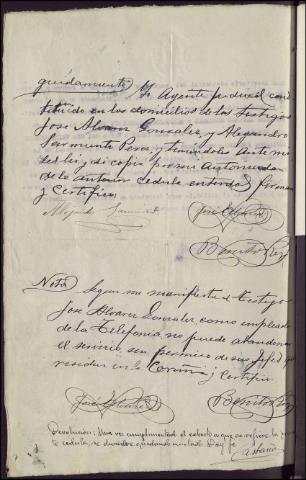 guidamiento, Yo Agente judicial cons
tituido en los domicilios de los testigos
Jose Alvarez Gonzalez, y Alejandro
Sarmiento Perez, y teniendolos ante mi
les lei, y di copia
de la anterior cedula enterados firman
y Certifico,
Alejandro Sarmiento
José Alvarez
Benito
Nota Segun me manifiesta el testigo
Jose Alvarez Gonzalez, como empleado
de la Telefonia, no puede abandonar
el servicio, sin permiso de sus Jefes, que
residen en la Coruña y Certifico.
José Alvarez
Benito
Devolución: Una vez cumplimentado el exhorto a que se refiere la
cedula, se devuelve quedando anotado. Doy fe